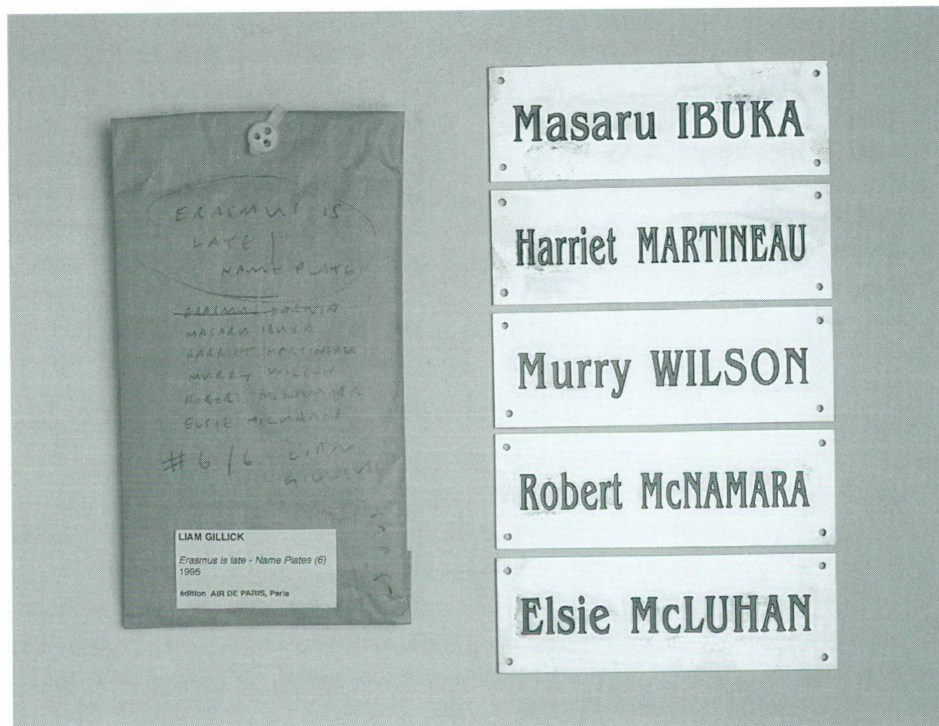 ERASMUS IS
LATE
NAME PLATE
ERASMUS DARWIN
MASARU IBUKA
HARRIET MARTINEAU
MURRY WILSON
ROBERT McNAMARA
ELSIE McLUHAN
#6/6 LIAM
GILLICK
LIAM GILLICK
Erasmus is late - Name Plates (6)
1995
édition AIR DE PARIS, Paris
Masaru IBUKA
Harriet MARTINEAU
Murry WILSON
Robert McNAMARA
Elsie McLUHAN